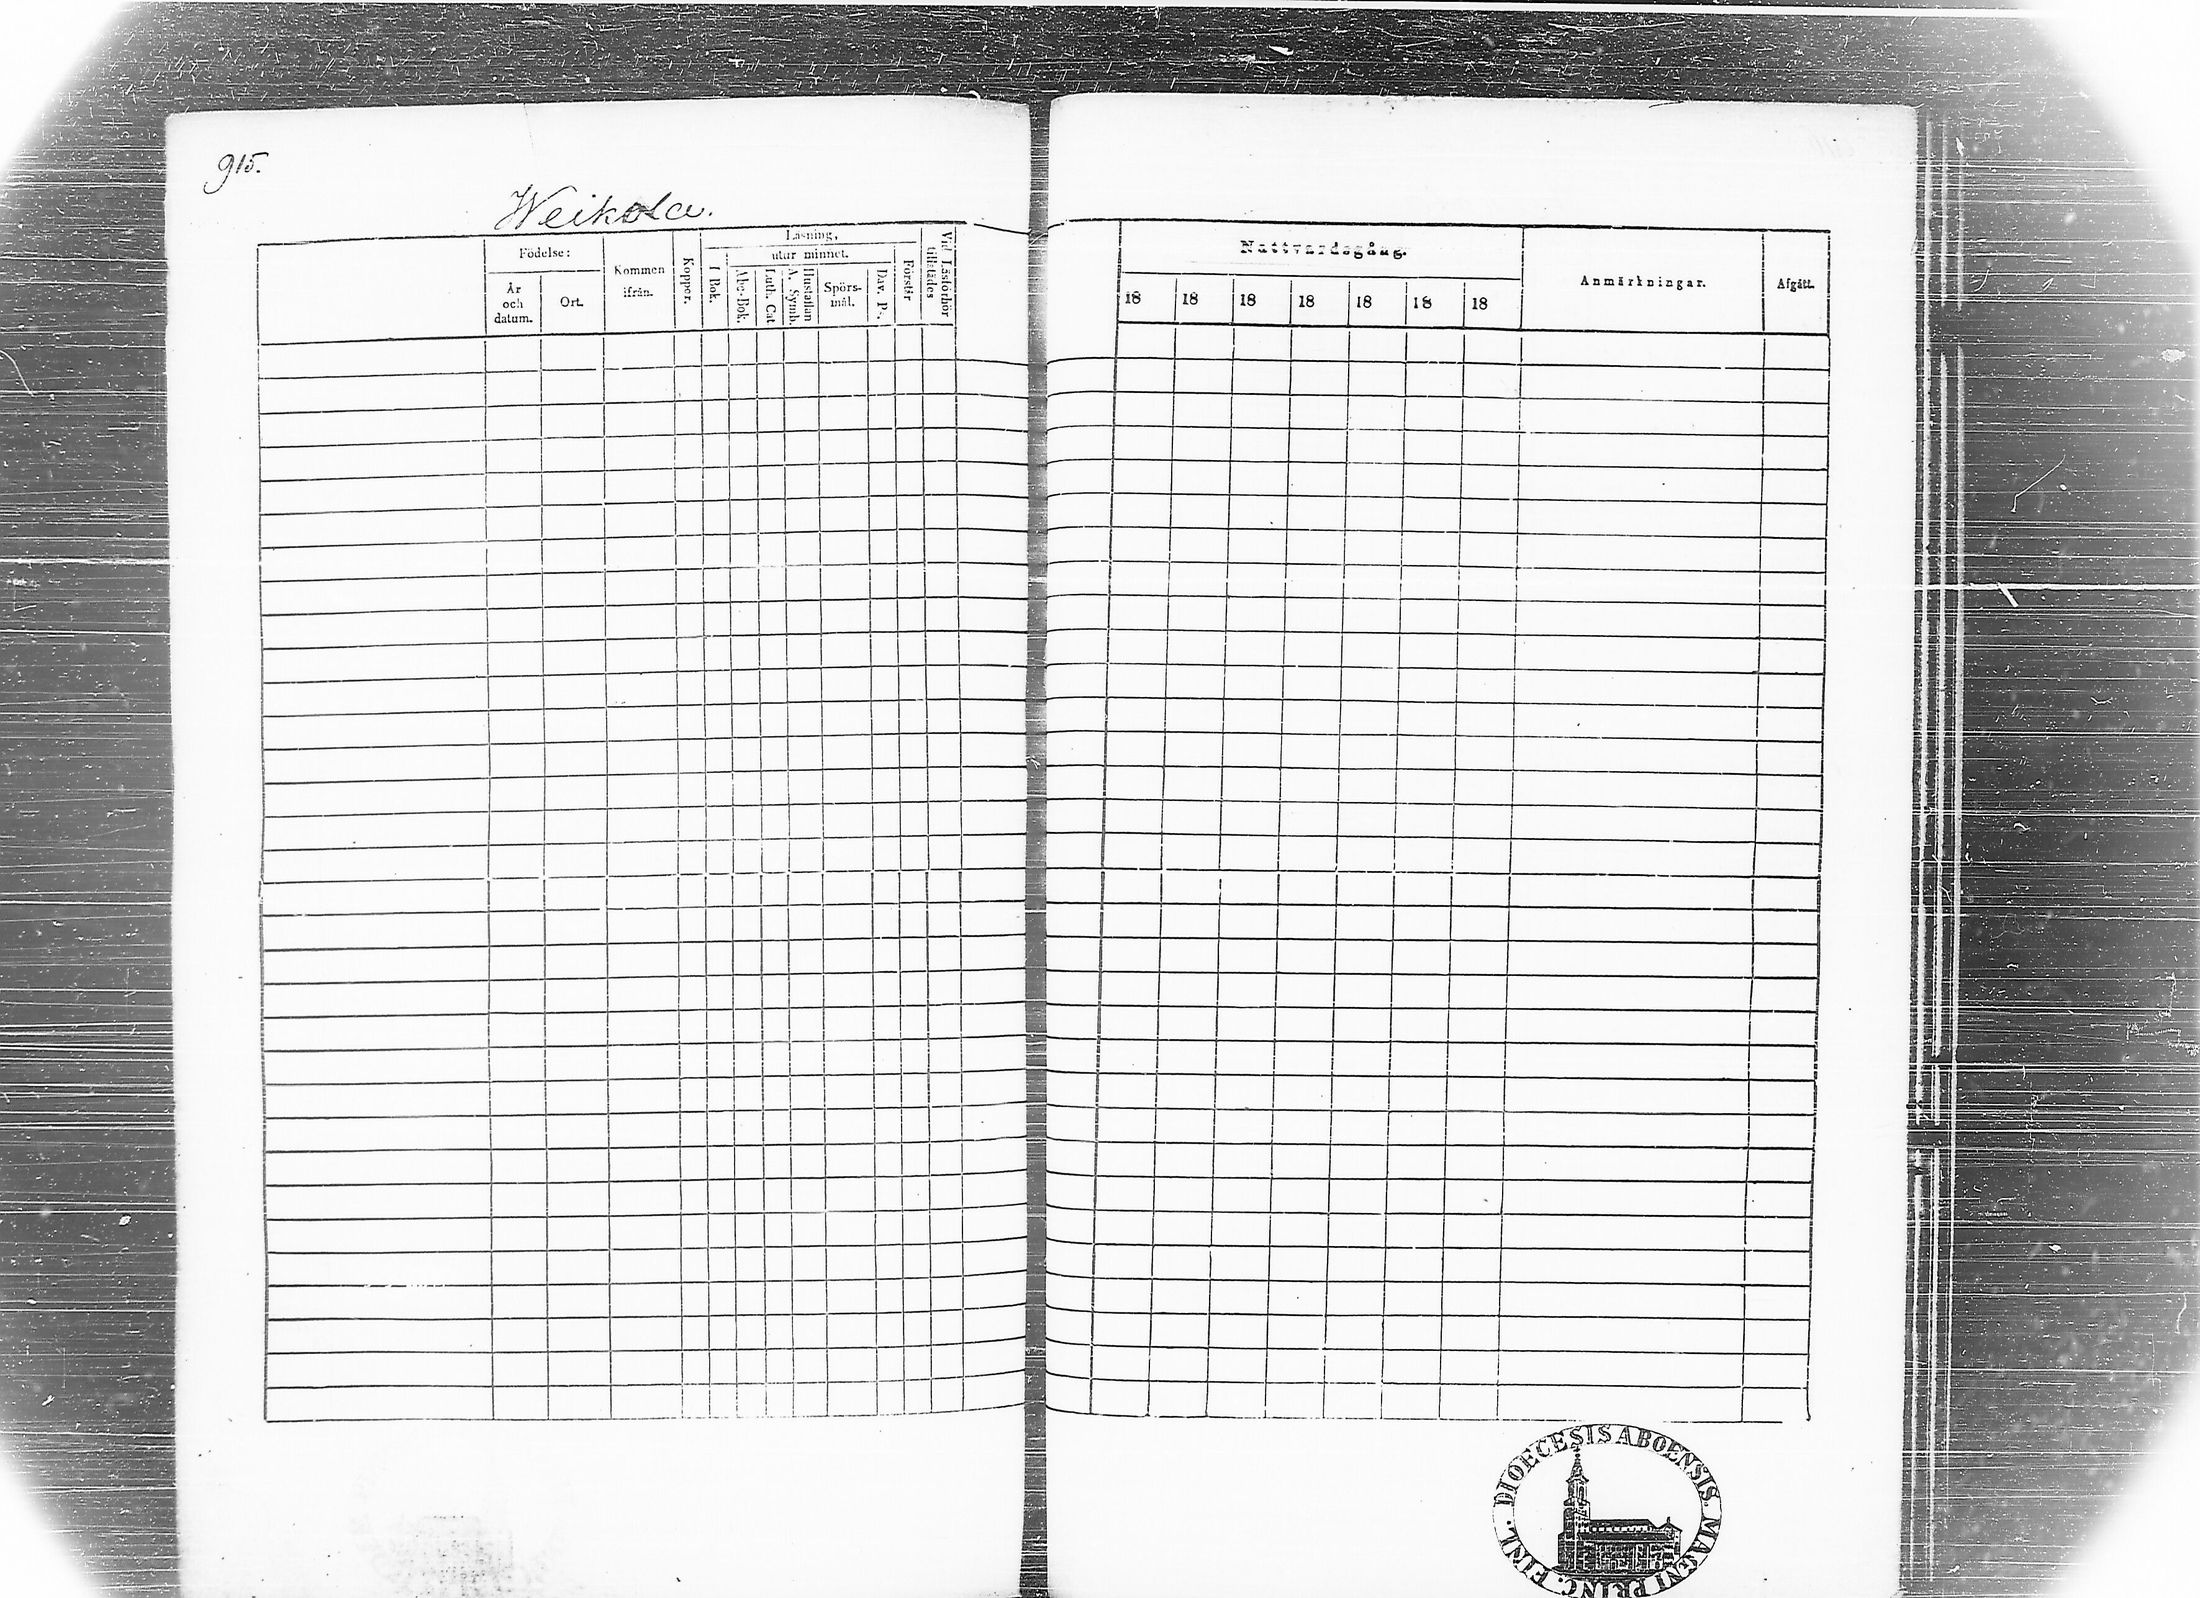 915.
Weikola.
Födelse:
År och datum.
Ort.
Kommen ifrån.
Koppor.
Läsning,
utur minnet.
I Bok.
Abc-Bok.
Luth. Cat
A. Symb.
Hustaflan
Spörs-mål.
Dav. Ps.
Förstår
Vid Läsförhör tillstädes
Nattvardsgång.
18 18 18 18 18 18 18
Anmärkningar.
Afgått.
DIOECESIS ABOENSIS. MAGNI PRINC. FINL.